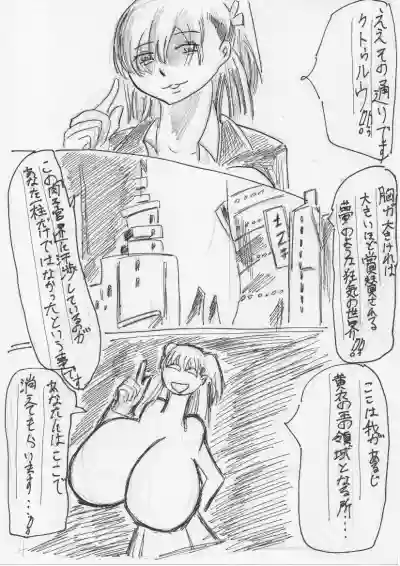 ええその通りです
クトゥルウ!!!
胸が大きければ
大きいほど賞賛される
夢のような狂気の世界!!!
この肉玉管界に干渉しているのが
あなた一柱だけではなかったという事です
ここは我があるじ
黄衣の王の領域となる所…
あなたにはここで
消えてもらいます…!!